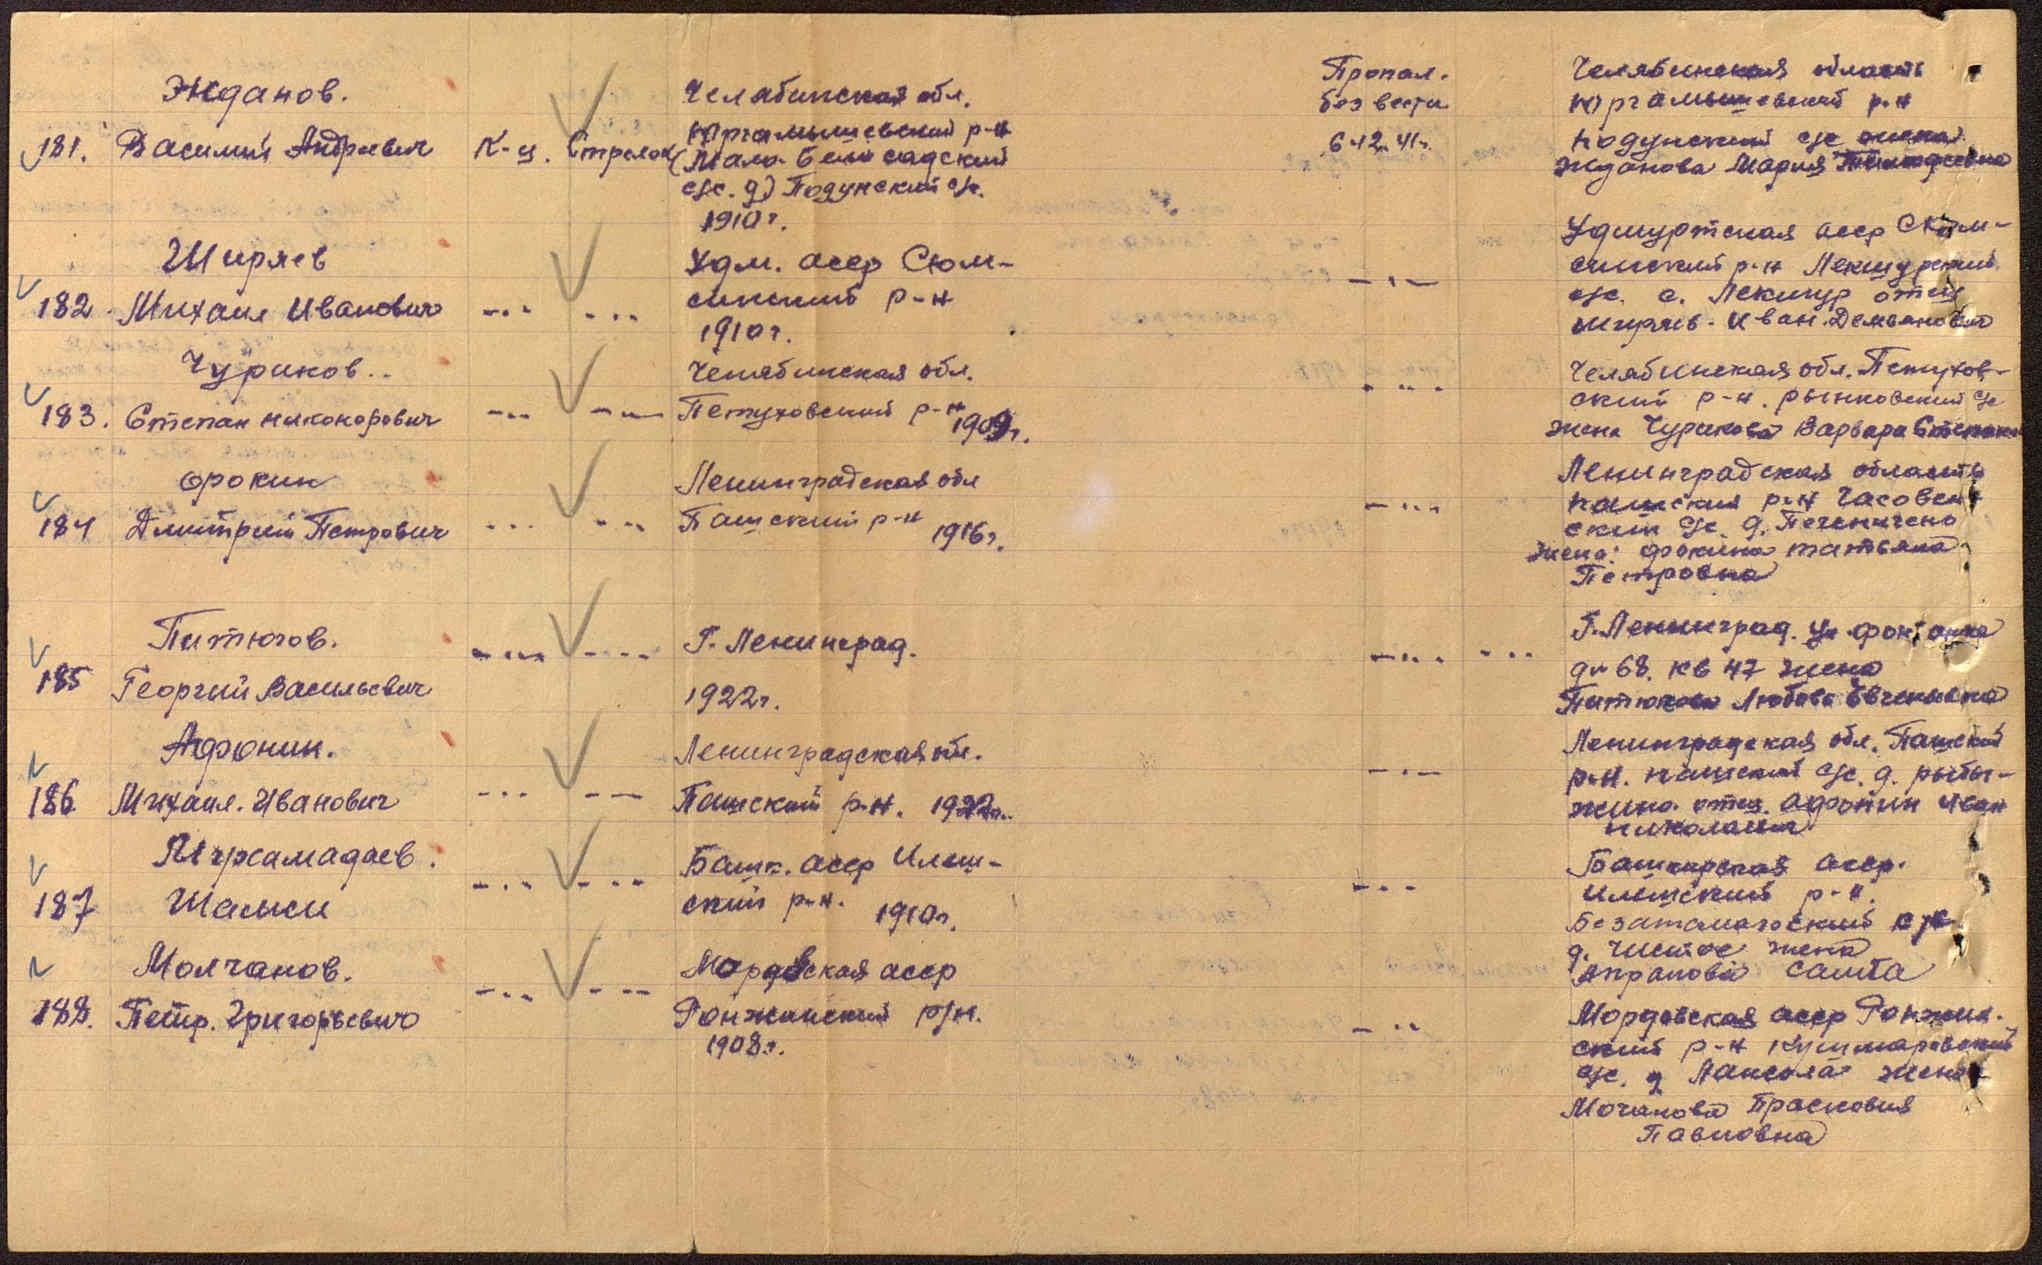 Жданов.
181. Василий Андреевич
К-ц. Стрелок
Челябинская обл.
Юргамышевский р-н
(Мало-Белисадский
с/с. д) Подунский с/с.
1910 г.
Пропал.
без вести
6-12-41 г.
Челябинская область
Юргамышевский р-н
Подунский с/с жена
Жданова Мария
Ширяев
182. Михаил Иванович
-"- -"-
Удм. асср Сюм-
синский р-н
1910 г.
-"-
Удмуртская асср Сюм-
синский р-н Лекшурский
с/с. с. Лекшур отец
Ширяев. Иван. Демьянович
Чуриков..
183. Степан Никонорович
-"- -"-
Челябинская обл.
Петуховский р-н
1909 г.
-"-
Челябинская обл. Петухов-
ский р-н. Рынковский с/с
жена Чурикова Варвара Степан
Фрокин
184 Дмитрий Петрович
-"- -"-
Ленинградская обл
Пашский р-н
1916 г.
-"-
Ленинградская область
Пашский р-н Часовен
ский с/с. д.
жена: Фрокина Татьяна
Петровна
Питюгов.
185 Георгий Васильевич
-"- -"-
Г. Ленинград.
1922 г.
-"- -"-
Г. Ленинград. ул. Фонтанка
д-68. кв 47 жена
Питюгова Любовь Евгеньевна
Афонин.
186 Михаил. Иванович
-"- -"-
Ленинградская обл.
Пашский р-н. 1922 г..
-"-
Ленинградская обл. Пашский
р-н. Пашский с/с. д. Рыбы-
жино. отец. Афонин Иван
Николаевич
Мурсамадаев.
187 Шаыси
-"- -"-
Башк. асср Илеш-
ский р-н.
1910 г.
-"-
Башкирская асср.
Илешский р-н.
с/с
д. Чистое жена
Апрапова Сашта
Молчанов.
188. Петр. Григорьевич
-"- -"-
Мордовская асср
Ронжинский р/н.
1908 г.
-"-
Мордовская асср Ронжин-
ский р-н Кушмаревский
с/с. д жена
Мочанова Прасковия
Павловна